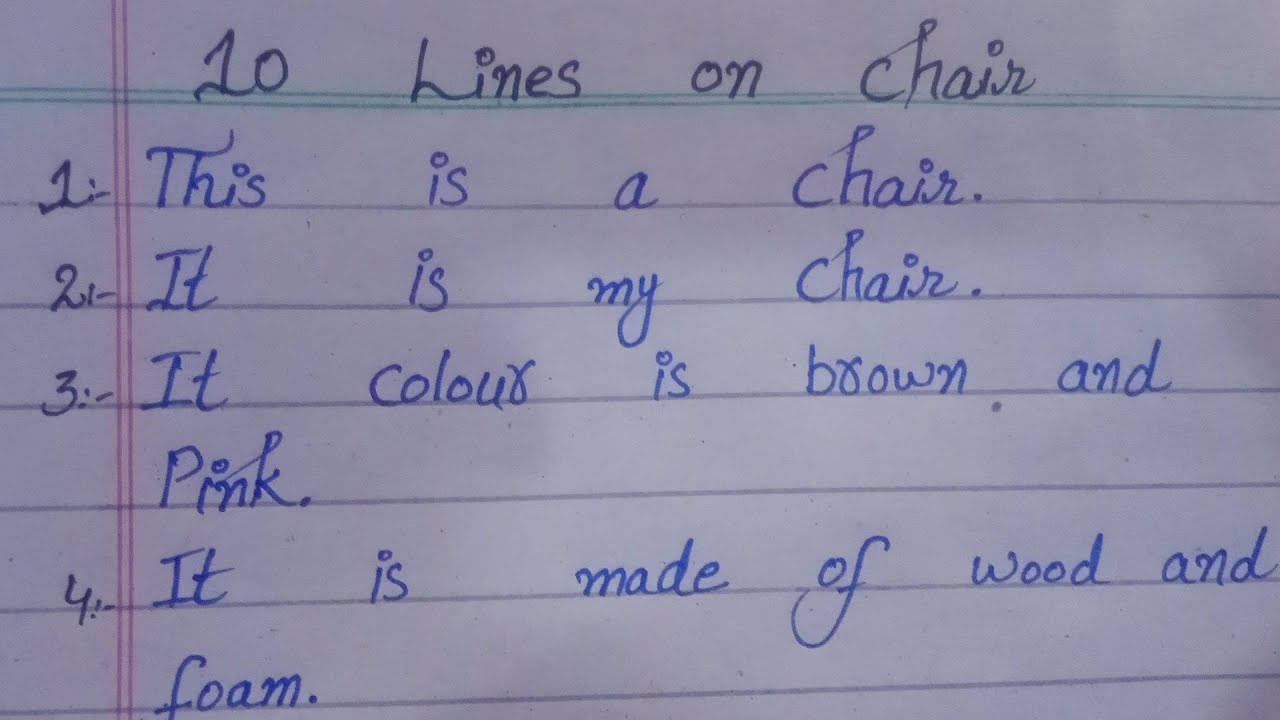 10 Lines on Chair
1:- This is a chair.
2:- It is my chair.
3:- It colour is brown and
Pink.
4:- It is made of wood and
foam.